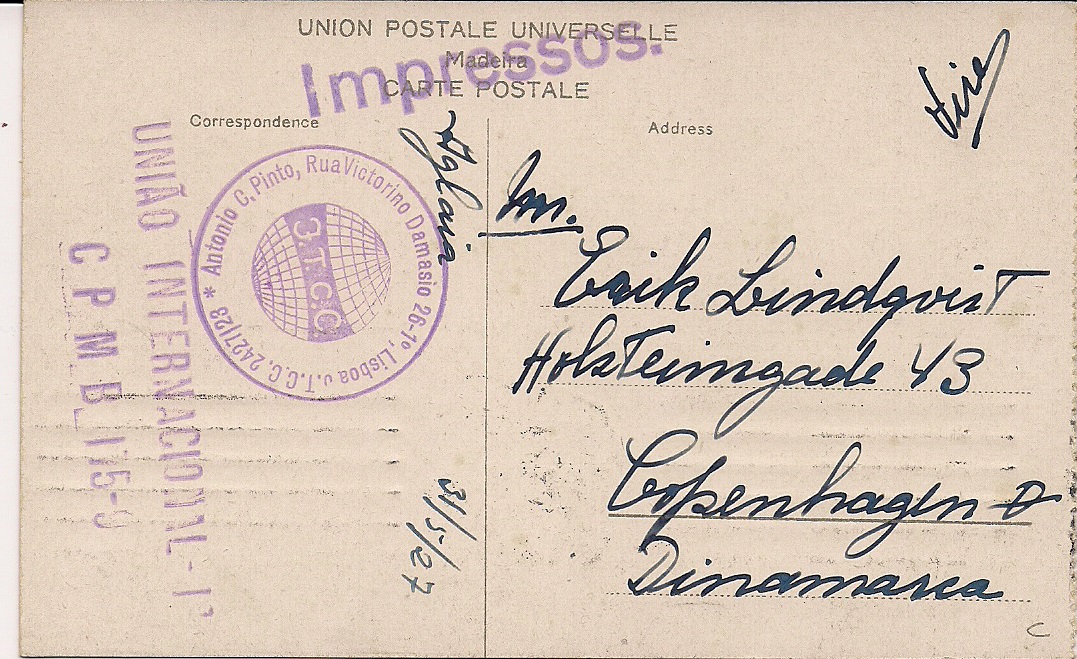 UNION POSTALE UNIVERSELLE
Madeira
CARTE POSTALE
Impressos.
Correspondence
Address
Vire
Aglaia
UNIÃO INTERNACIONAL - 1º
C P M B 175-9
* Antonio C. Pinto, Rua Victorino Damasio 26-1º, Lisboa J.T.C.C. 2427/23
J.T.C.C.
31/5/27
Erik Lindqvist
Holsteinsgade 43
Copenhagen Ø
Dinamarca
C